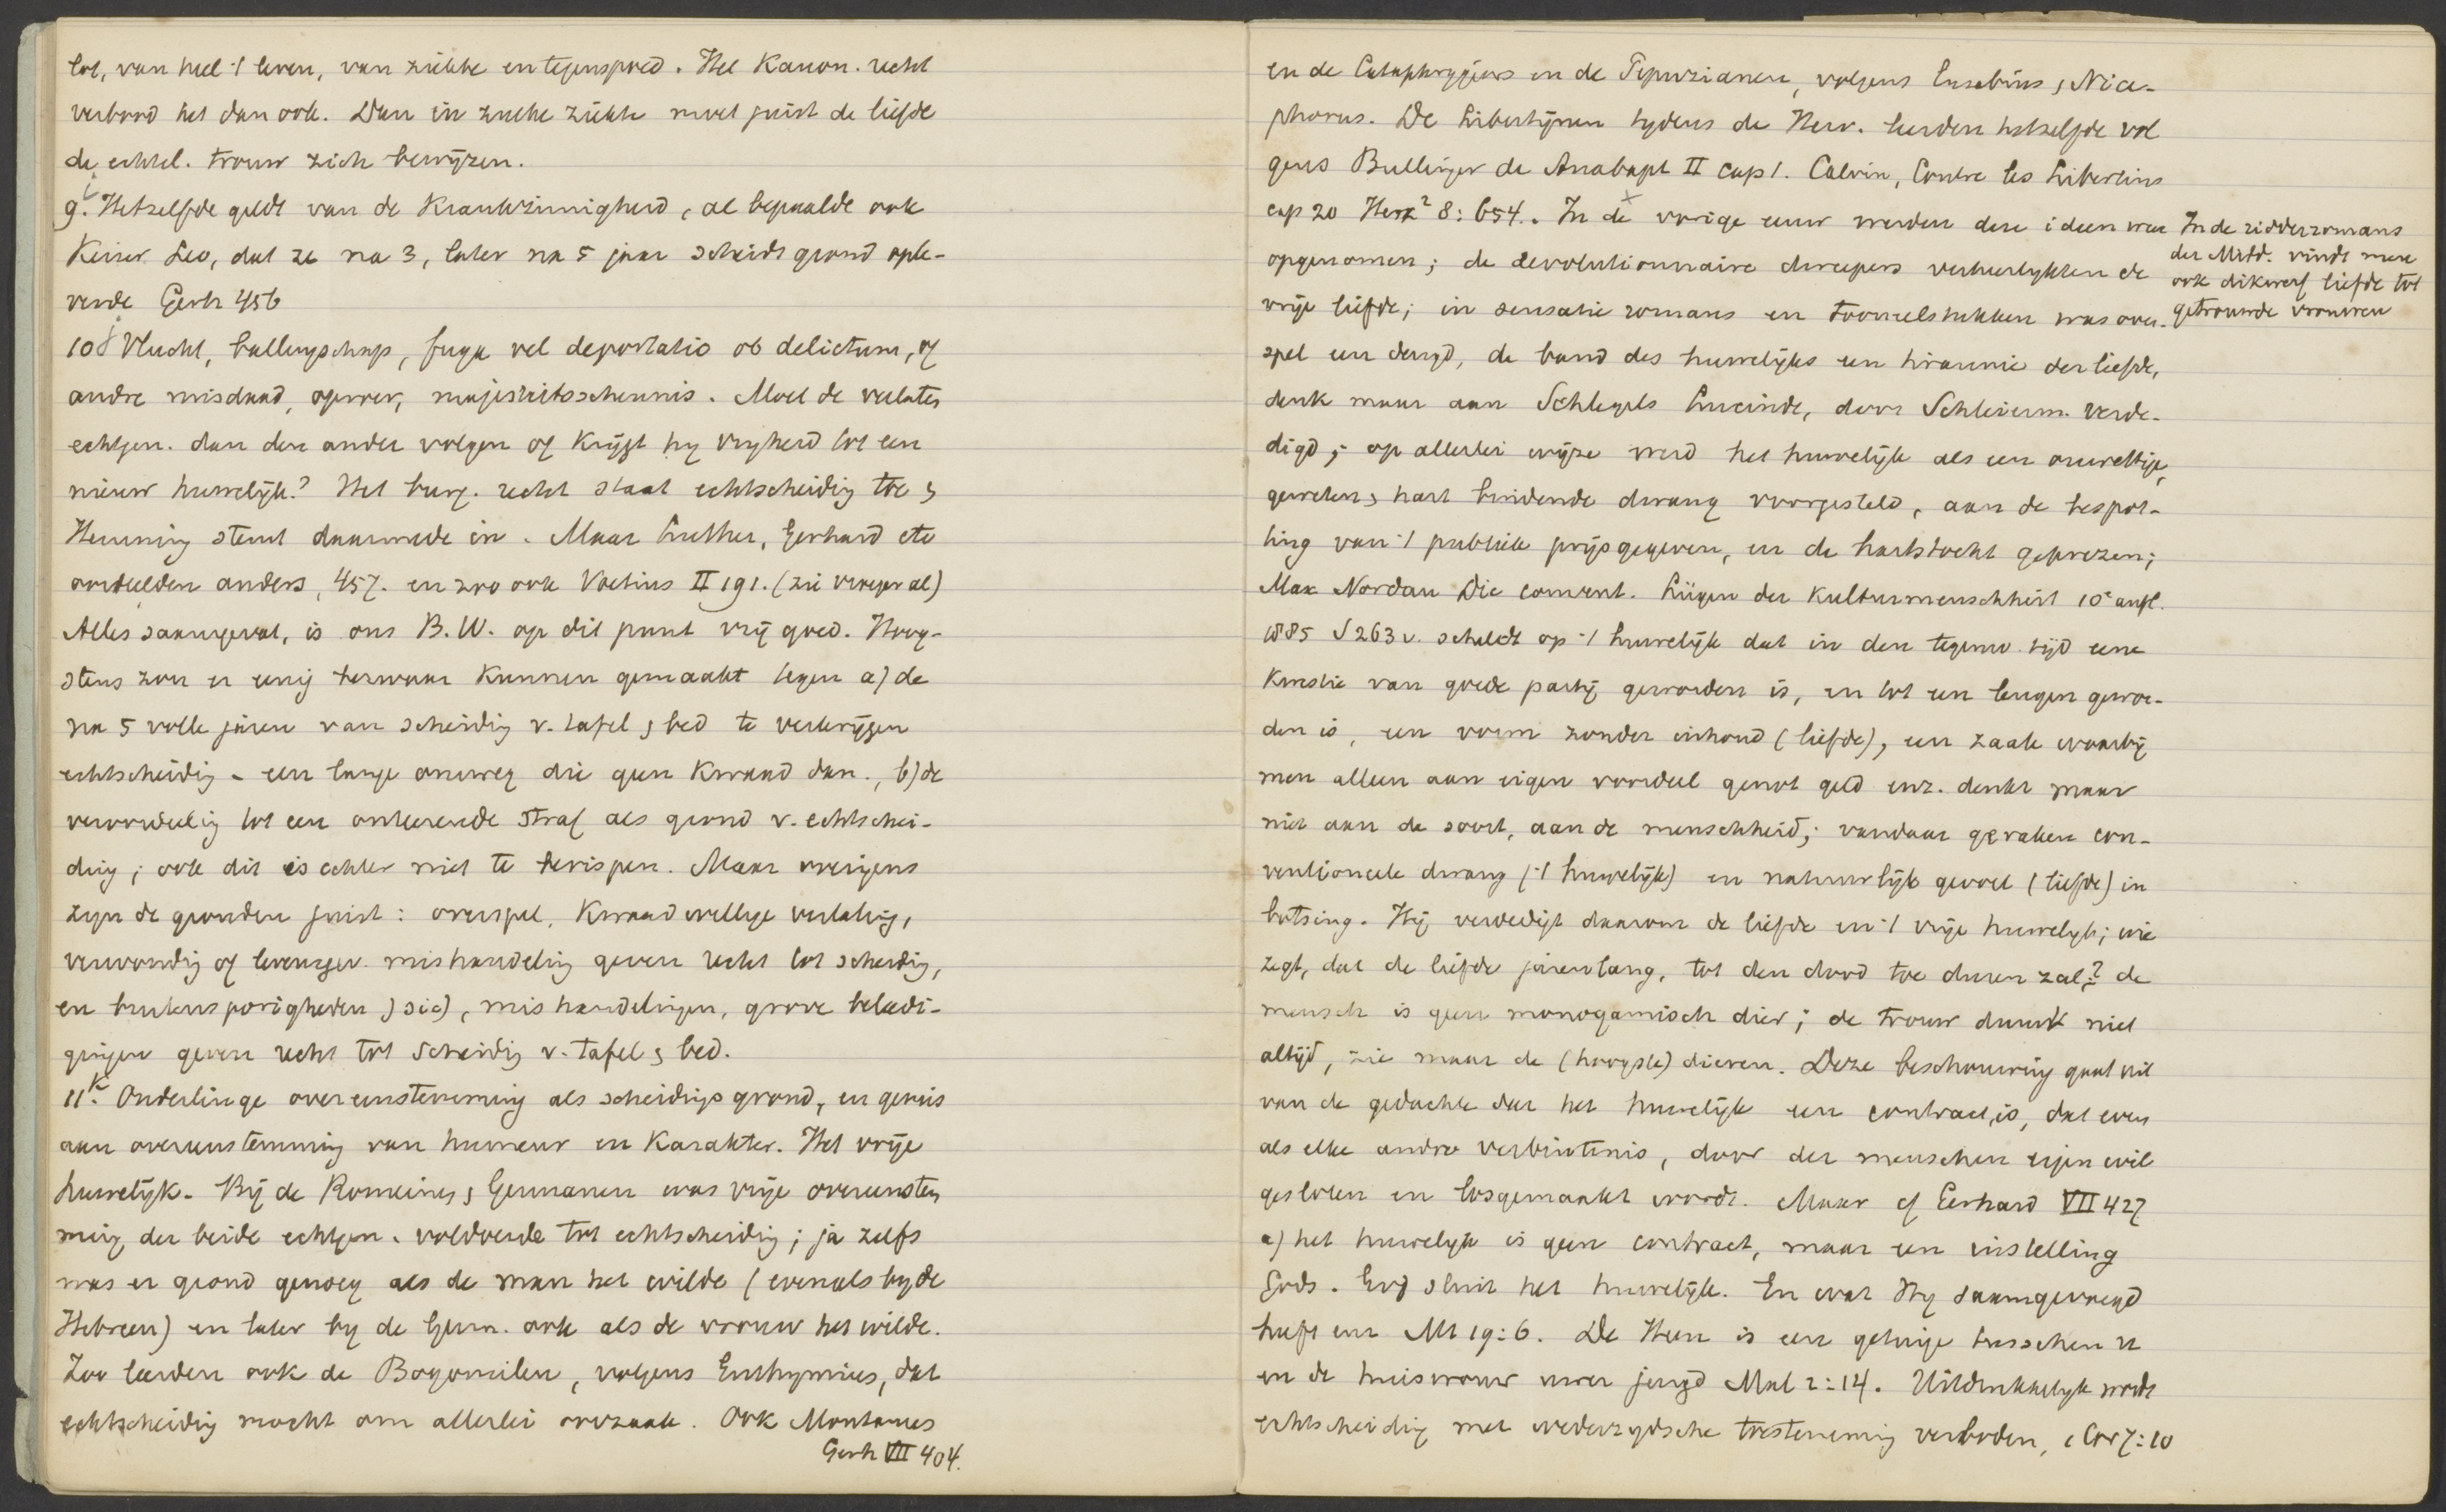 lot, van heel 't leven, van ziekte en tegenspoed. Het Kanon. recht
verbood het dan ook. Dan in zulke ziekte moet juist de liefde
de echtel. trouw zich bewijzen.
9.i Hetzelfde geldt van de Krankzinnigheid, al bepaalde ook
Keizer Leo, dat ze na 3, later na 5 jaar scheidsgrond ople-
verde Gerh 456
10 j Vlucht, ballingschap, fuga vel deportatio ob delictum, of
andre misdaad, oproer, majesteitsschennis. Moet de verlaten
echtgen. dan den ander volgen of krijgt hy vryheid tot een
nieuw huwelijk? Het burg. recht staat echtscheidig toe &
Henning stemt daarmede in. Maar Luther, Gerhard etc
oordeelden anders, 457. en zoo ook Voetius II 191. (zie vroeger al)
Alles saamgevat, is ons B.W. op dit punt vrij goed. Hoog-
stens zou er enig bezwaar kunnen gemaakt tegen a) de
na 5 volle jaren van scheidig v. tafel & bed te verkrijgen
echtscheidig - een lange omweg die geen kwaad dan., b) de
veroordeelig tot een onteerende straf als grond v. echtschei-
dig; ook dit is echter niet te berispen. Maar overigens
zyn de gronden juist: overspel, kwaadwillige verlatig,
verwondig of levensgev. mishandelig geven recht tot scheidig,
en buitensporigheden (sic), mishandelingen, grove beleedi-
gingen geven recht tot scheidig v. tafel & bed.
11.k Onderlinge overeenstemming als scheidingsgrond, en gemis
aan overeenstemming van humeur en karakter. Het vrije
huwelijk - Bij de Romeinen & Germanen was vrije overeenstem
ming der beide echtgen. voldoende tot echtscheidig; ja zelfs
was er grond genoeg als de man het wilde (evenals by de
Hebreen) en later by de Germ. ook als de vrouw het wilde.
Zoo leerden ook de Bogomilen, volgens Euthymius, dat
echtscheidig mocht om allerlei oorzaak. Ook Montanus
Gerh VII 404.
en de Cataphrygiers en de Pepuzianen, volgens Eusebius & Nice-
phorus. De Libertijnen tydens de Herv. leerden hetzelfde vol
gens Bullinger de Anabapt II cap 1. Calvin, Contre les Libertins
cap 20 Herz² 8:654. In de x vorige eeuw werden deze ideen weer
opgenomen; de revolutionnaire dweepers verheerlykten de
vrije liefde; in sensatie romans en tooneelstukken was over-
spel een deugd, de band des huwelijks een tirannie der liefde,
denk maar aan Schlegels Lucinde, door Schleierm. verde-
digd; op allerlei wijze werd het huwelijk als een onwettige,
geweten & hart bindende dwang voorgesteld, aan de bespot-
ting van 't publiek prijsgegeven, en de hartstocht geprezen;
Max Nordau Die convent. Lügen der Kulturmenschheit 10e aufl.
1885 S 263 v. scheldt op 't huwelijk dat in den tegenw. tijd eene
kwestie van goede partij geworden is, en tot een leugen gewor-
den is, een vorm zonder inhoud (liefde), een zaak waarbij
men alleen aan eigen voordeel genot geld enz. denkt maar
niet aan de soort, aan de menschheid; vandaar geraken con-
ventioneele dwang ('t huwelijk) en natuurlijk gevoel (liefde) in
botsing. Hij verdedigt daarom de liefde en 't vrije huwelijk; wie
zegt, dat de liefde jarenlang, tot den dood toe duren zal? de
mensch is geen monogamisch dier; de trouw duurt niet
altijd, zie maar de (hoogste) dieren. Deze beschouwing gaat uit
van de gedachte dat het huwelijk een contract is, dat even
als elke andre verbintenis, door der menschen eigen wil
gesloten en losgemaakt wordt. Maar cf Gerhard VII 427
a) het huwelijk is geen contract, maar een instelling
Gods. God sluit het huwelijk. En wat Hy saamgevoegd
heeft enz Mt 19:6. De Heer is een getuige tusschen u
en de huisvrouw uwer jeugd Mal 2:14. Uitdrukkelijk wordt
echtscheidig met wederzydsche toestemmig verboden, 1 Cor 7:10
In de ridderromans
der Midd. vindt men
ook dikwerf liefde tot
getrouwde vrouwen